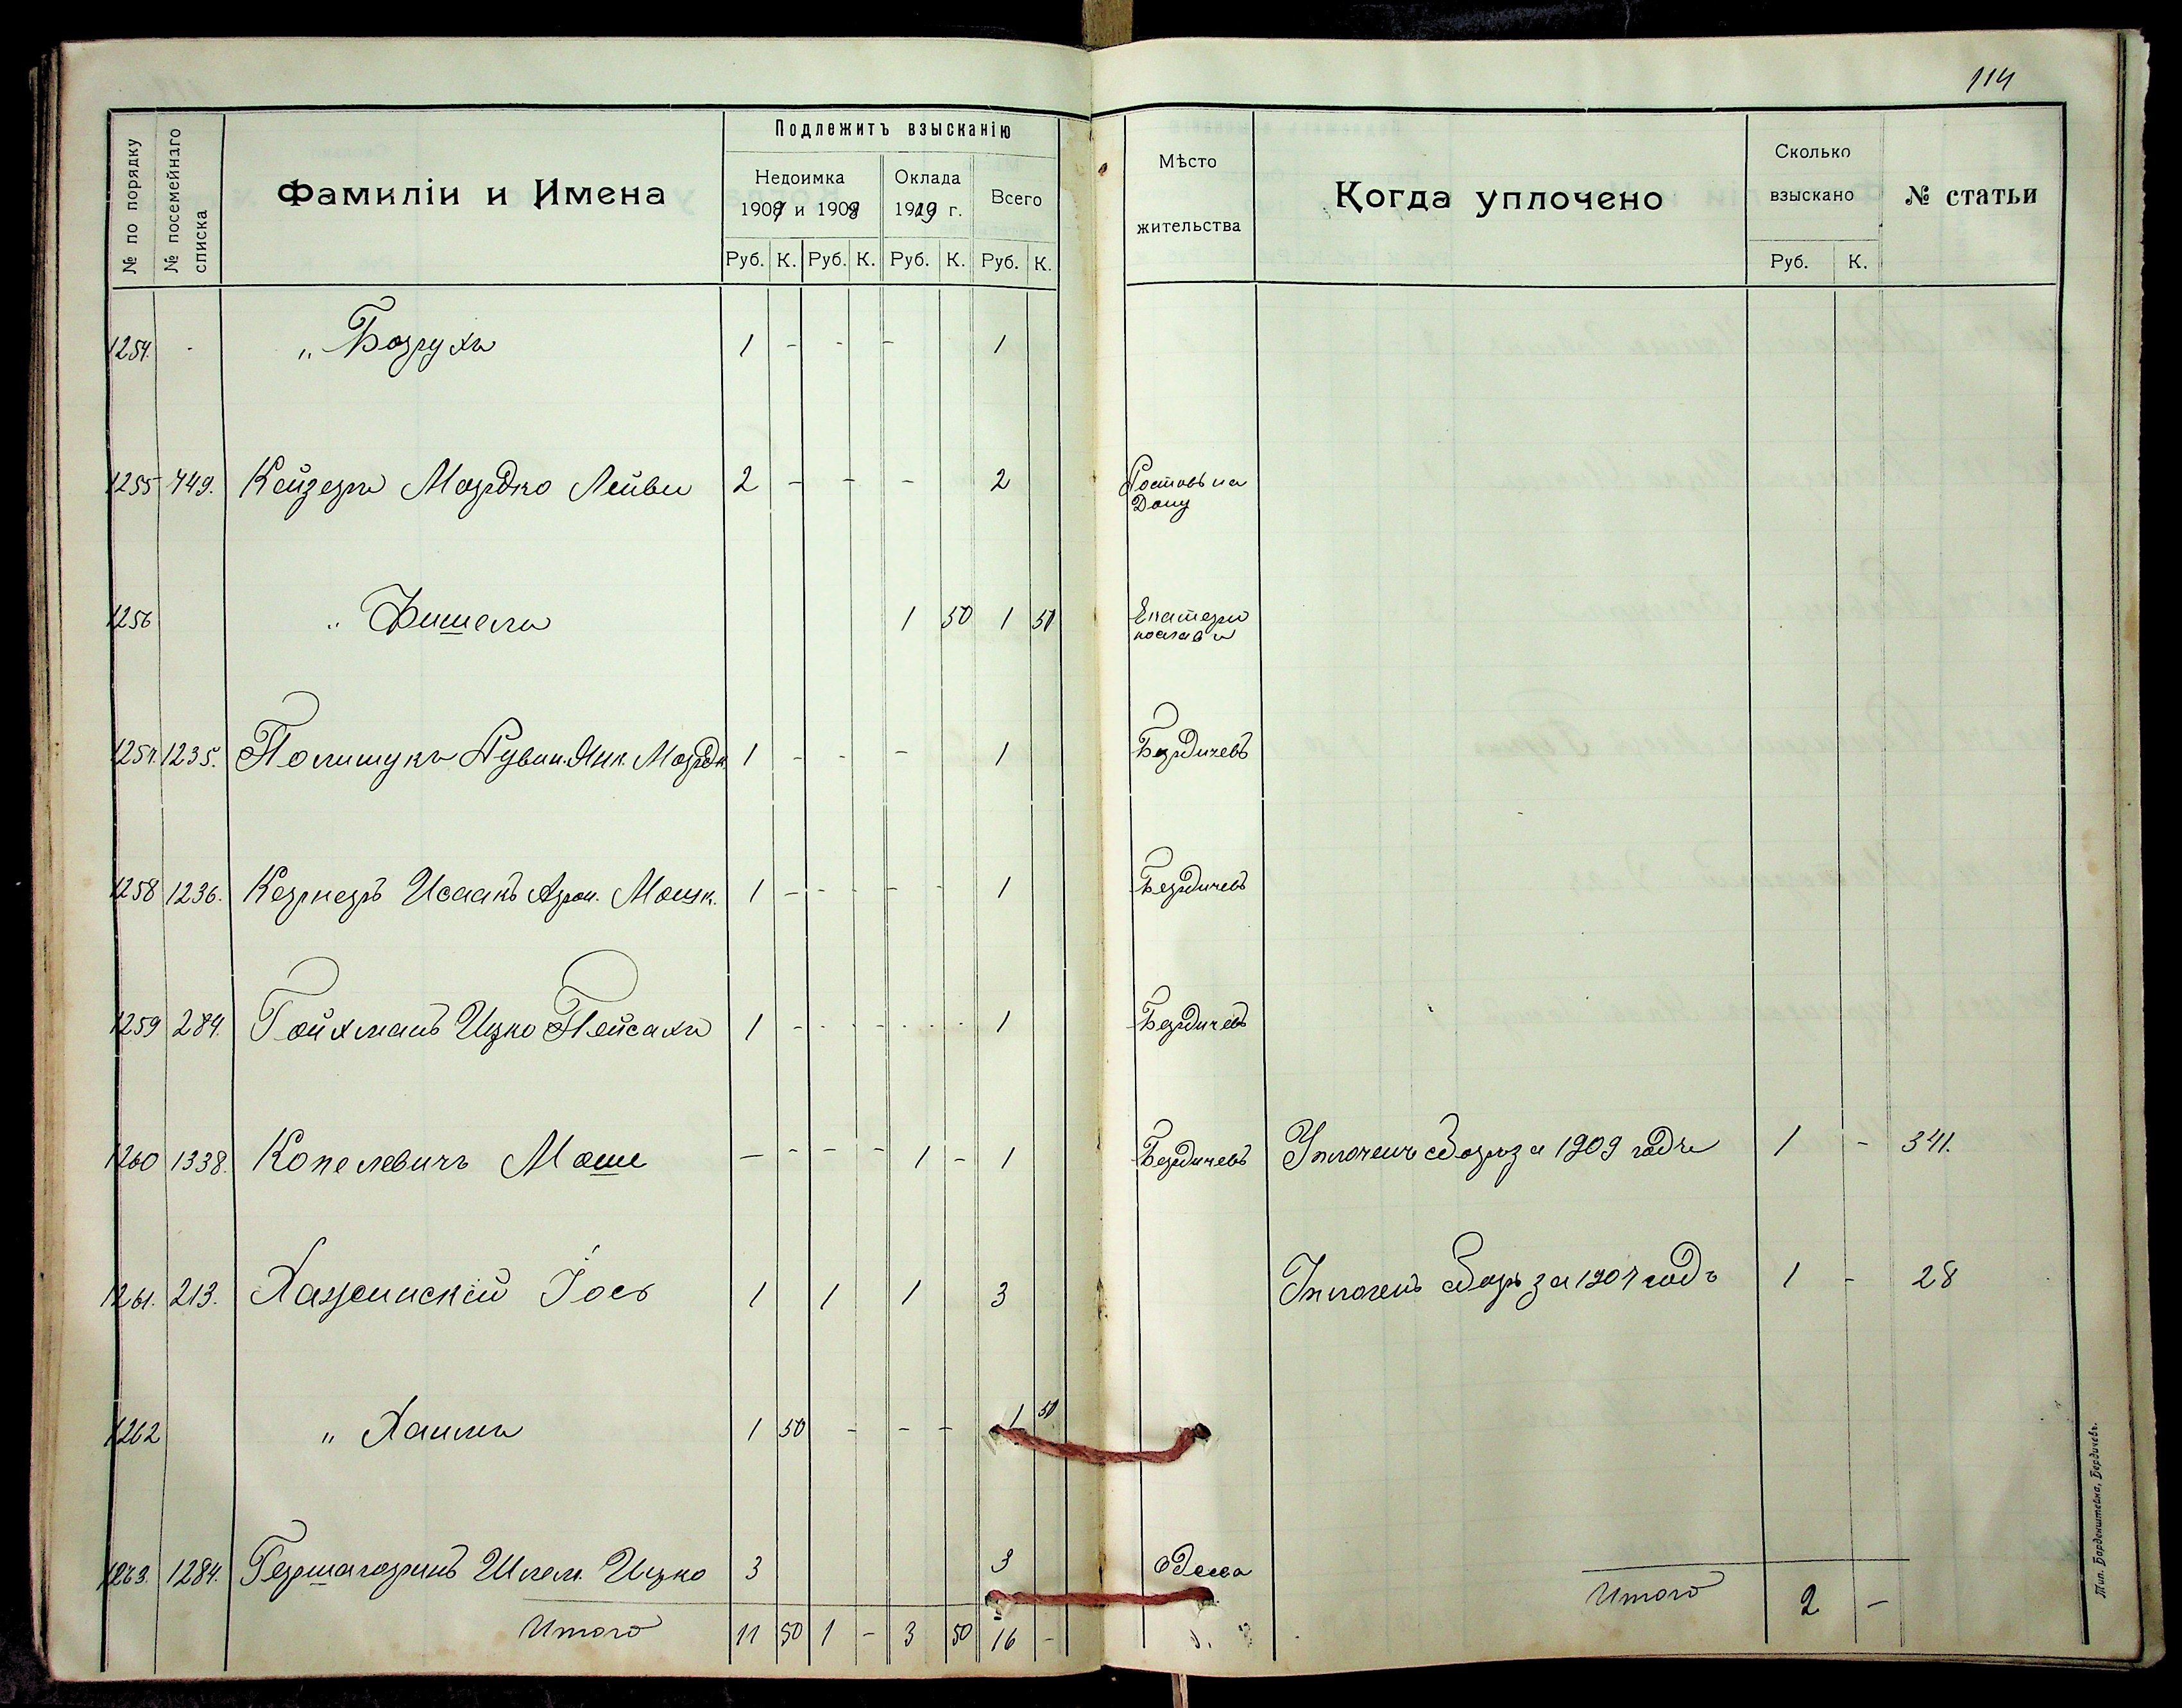 114
№ по порядку
№ посемейнаго списка
Фамиліи и Имена
Подлежитъ взысканію
Недоимка
1907 и 1908
Оклада
1909 г.
Всего
Руб. К. Руб. К. Руб. К. Руб. К.
Мѣсто
жительства
Когда уплочено
Сколько
взыскано
Руб. К.
№ статьи
1254. - „ Борухъ 1 - - - 1
1255 449. Кейзеръ Мордко Лейви 2 - - - 2 Ростовъ на
Дону
1256 „ Фишель 1 50 1 50 Екатери
нославъ
1257. 1235. Полищукъ Рувин. Янк. Мордк. 1 - - - 1 Бердичевъ
1258 1236. Кернеръ Исаакъ Арон. Мошк. 1 - - - - - 1 Бердичевъ
1259 284. Гойхманъ Ицко Пейсахъ 1 - - - - - - 1 Бердичевъ
1260 1338. Копелевичъ Моше - - - - 1 - 1 Бердичевъ Уплоченъ сборъ за 1909 годъ 1 - 341.
1261. 213. Хажинскій Іось 1 1 1 3 Уплоченъ сборъ за 1907 годъ 1 - 28
1262 „ Хаимъ 1 50 - - - 1 50
1263. 1284. Гершагоринъ Шлем. Ицко 3 3 Одесса
Итого 11 50 1 - 3 50 16 -
Итого 2 -
Тип. Барденштейна, Бердичевъ.